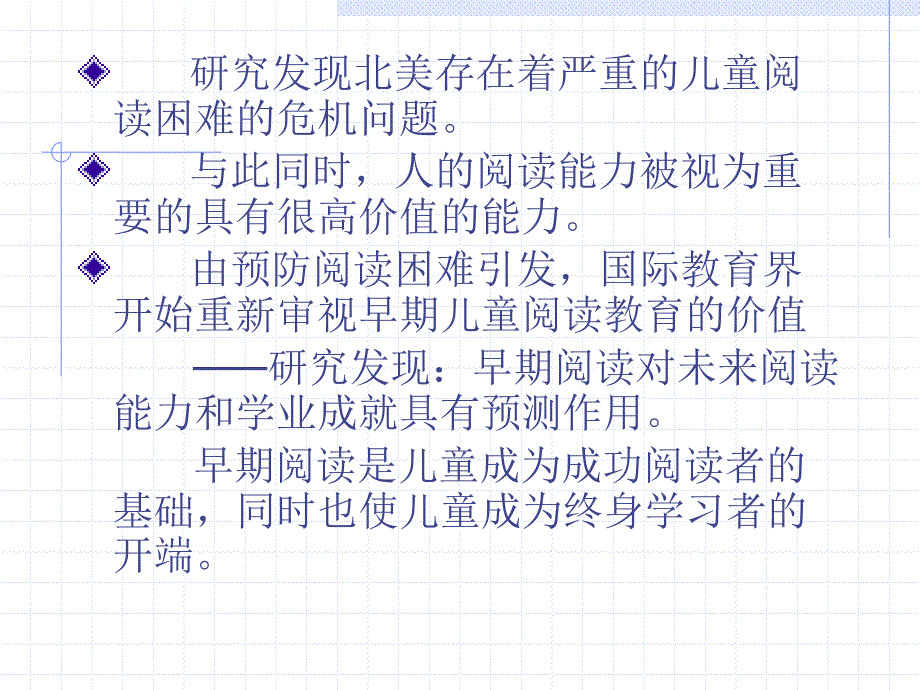 研究发现北美存在着严重的儿童阅
读困难的危机问题。
与此同时，人的阅读能力被视为重
要的具有很高价值的能力。
由预防阅读困难引发，国际教育界
开始重新审视早期儿童阅读教育的价值
——研究发现：早期阅读对未来阅读
能力和学业成就具有预测作用。
早期阅读是儿童成为成功阅读者的
基础，同时也使儿童成为终身学习者的
开端。